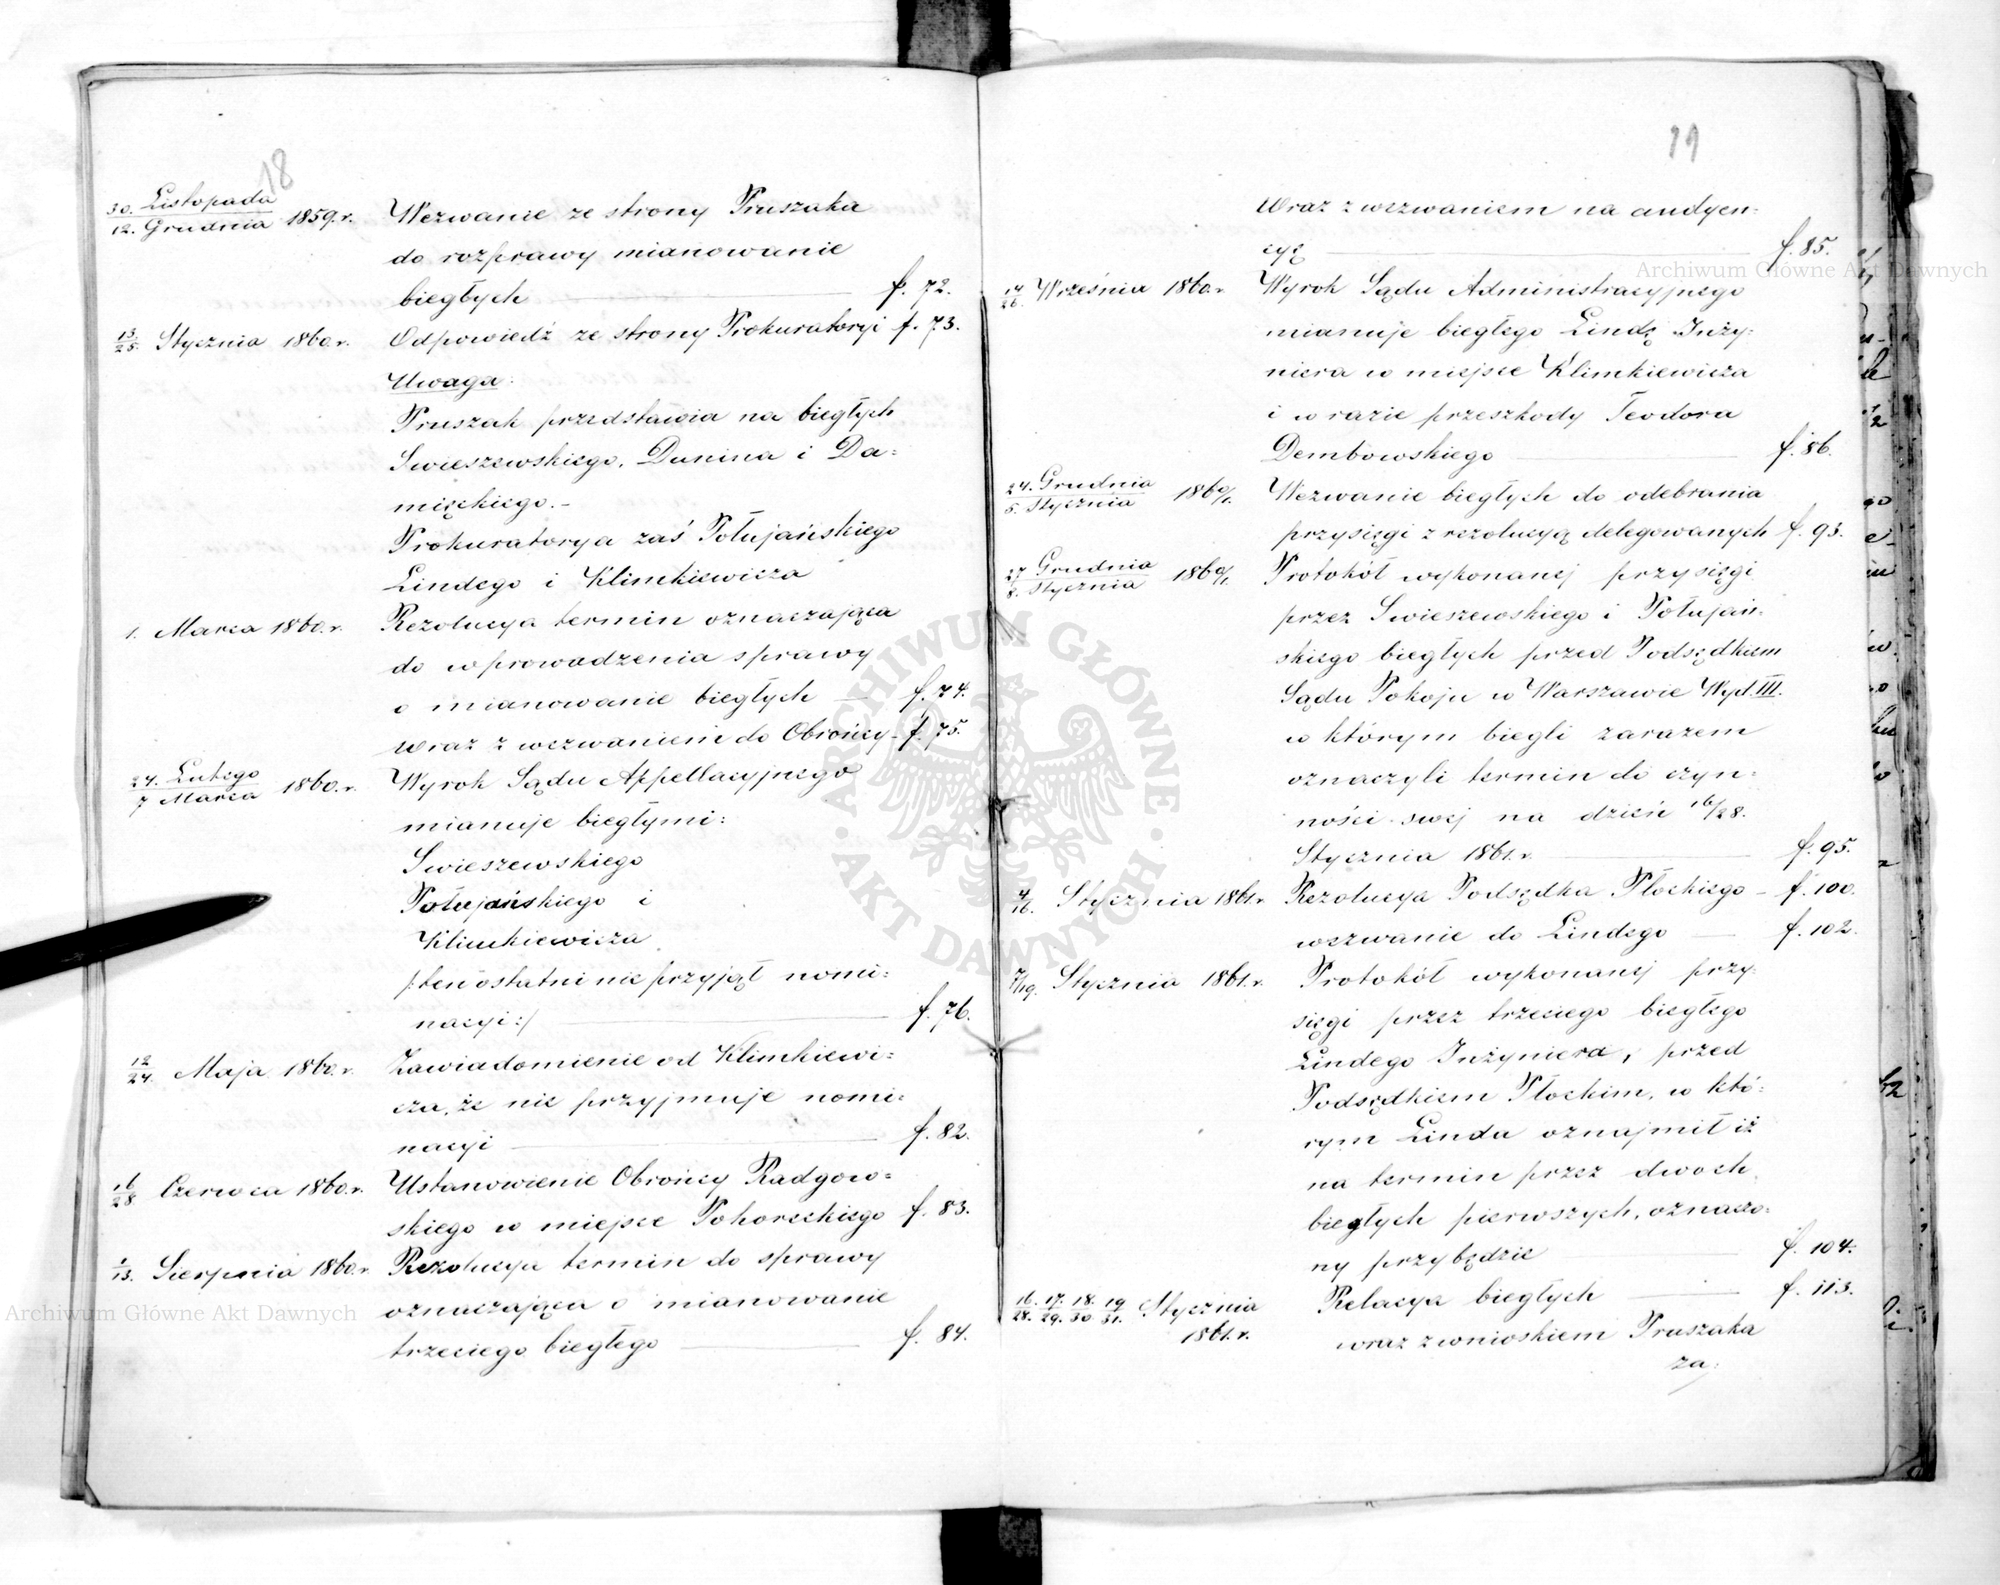 18
30. Listopada
12. Grudnia 1859.r. Wezwanie ze strony Pruszaka
do rozprawy mianowanie
biegłych f. 72.
13/25. Stycznia 1860.r. Odpowiedź ze strony Prokuratoryi f. 73.
Uwaga:
Pruszak przedstawia na biegłych
Swieszewskiego, Dunina i Da=
mięckiego.-
Prokuratorya zaś Połujańskiego
Lindego i Klimkiewicza
1. Marca 1860.r. Rezolucya termin oznaczająca
do wprowadzenia sprawy
o mianowanie biegłych f. 74.
wraz z wezwaniem do Obrońcy - f. 75.
24. Lutego
7 Marca 1860.r. Wyrok Sądu Appellacyjnego
mianuje biegłymi:
Swieszewskiego
Połujańskiego i
Klimkiewicza
/:ten ostatni nie przyjął nomi=
nacyi:/ f. 76.
12/24. Maja 1860.r. Zawiadomienie od Klimkiewi=
cza, że nie przyjmuje nomi=
nacyi f. 82.
16/28. Czerwca 1860.r. Ustanowienie Obrońcy Radgow=
skiego w miejsce Pohoreckiego f. 83.
1/13. Sierpnia 1860.r. Rezolucya termin do sprawy
oznaczająca o mianowanie
trzeciego biegłego f. 84.
19
wraz z wezwaniem na audyen=
cyą f. 85.
14/26. Września 1860.r. Wyrok Sądu Administracyjnego
mianuje biegłego Lindę Inży=
niera w miejsce Klimkiewicza
i w razie przeszkody Teodora
Dembowskiego f. 86.
24. Grudnia
5. Stycznia 1860/1. Wezwanie biegłych do odebrania
przysięgi z rezolucyą delegowanych f. 93.
27 Grudnia
8. Stycznia 1860/1. Protokół wykonanej przysięgi
przez Swieszewskiego i Połujań=
skiego biegłych przed Podsędkiem
Sądu Pokoju w Warszawie Wyd. III.
w którym biegli zarazem
oznaczyli termin do czyn=
ności swej na dzień 16/28.
Stycznia 1861.r. f. 95.
4/16. Stycznia 1861.r. Rezolucya Podsędka Płockiego - f. 100.
wezwanie do Lindego f. 102.
7/19. Stycznia 1861.r. Protokół wykonanej przy=
sięgi przez trzeciego biegłego
Lindego Inżyniera, przed
Podsędkiem Płockim, w któ=
rym Linda oznajmił iż
na termin przez dwóch
biegłych pierwszych, oznaczo=
ny przybędzie f. 104.
16. 17. 18. 19
28. 29. 30. 31. Stycznia Relacya biegłych f. 113.
1861.r. wraz z wnioskiem Pruszaka
za=
Archiwum Główne Akt Dawnych
Archiwum Główne Akt Dawnych
ARCHIWUM GŁÓWNE
AKT DAWNYCH